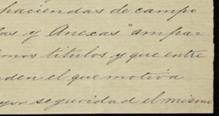 haciendas de campo
as y Anexas" ampar
mos titulos y que entre
nden el que motiva
yor seguridad el mismo